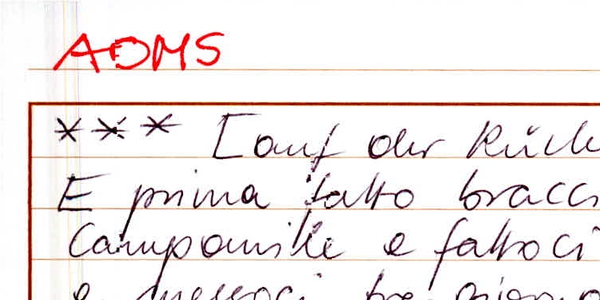 AOMS
*** [auf der Rück
E prima fatto bracci
Campanille e fattoci
e messoci tre giorno